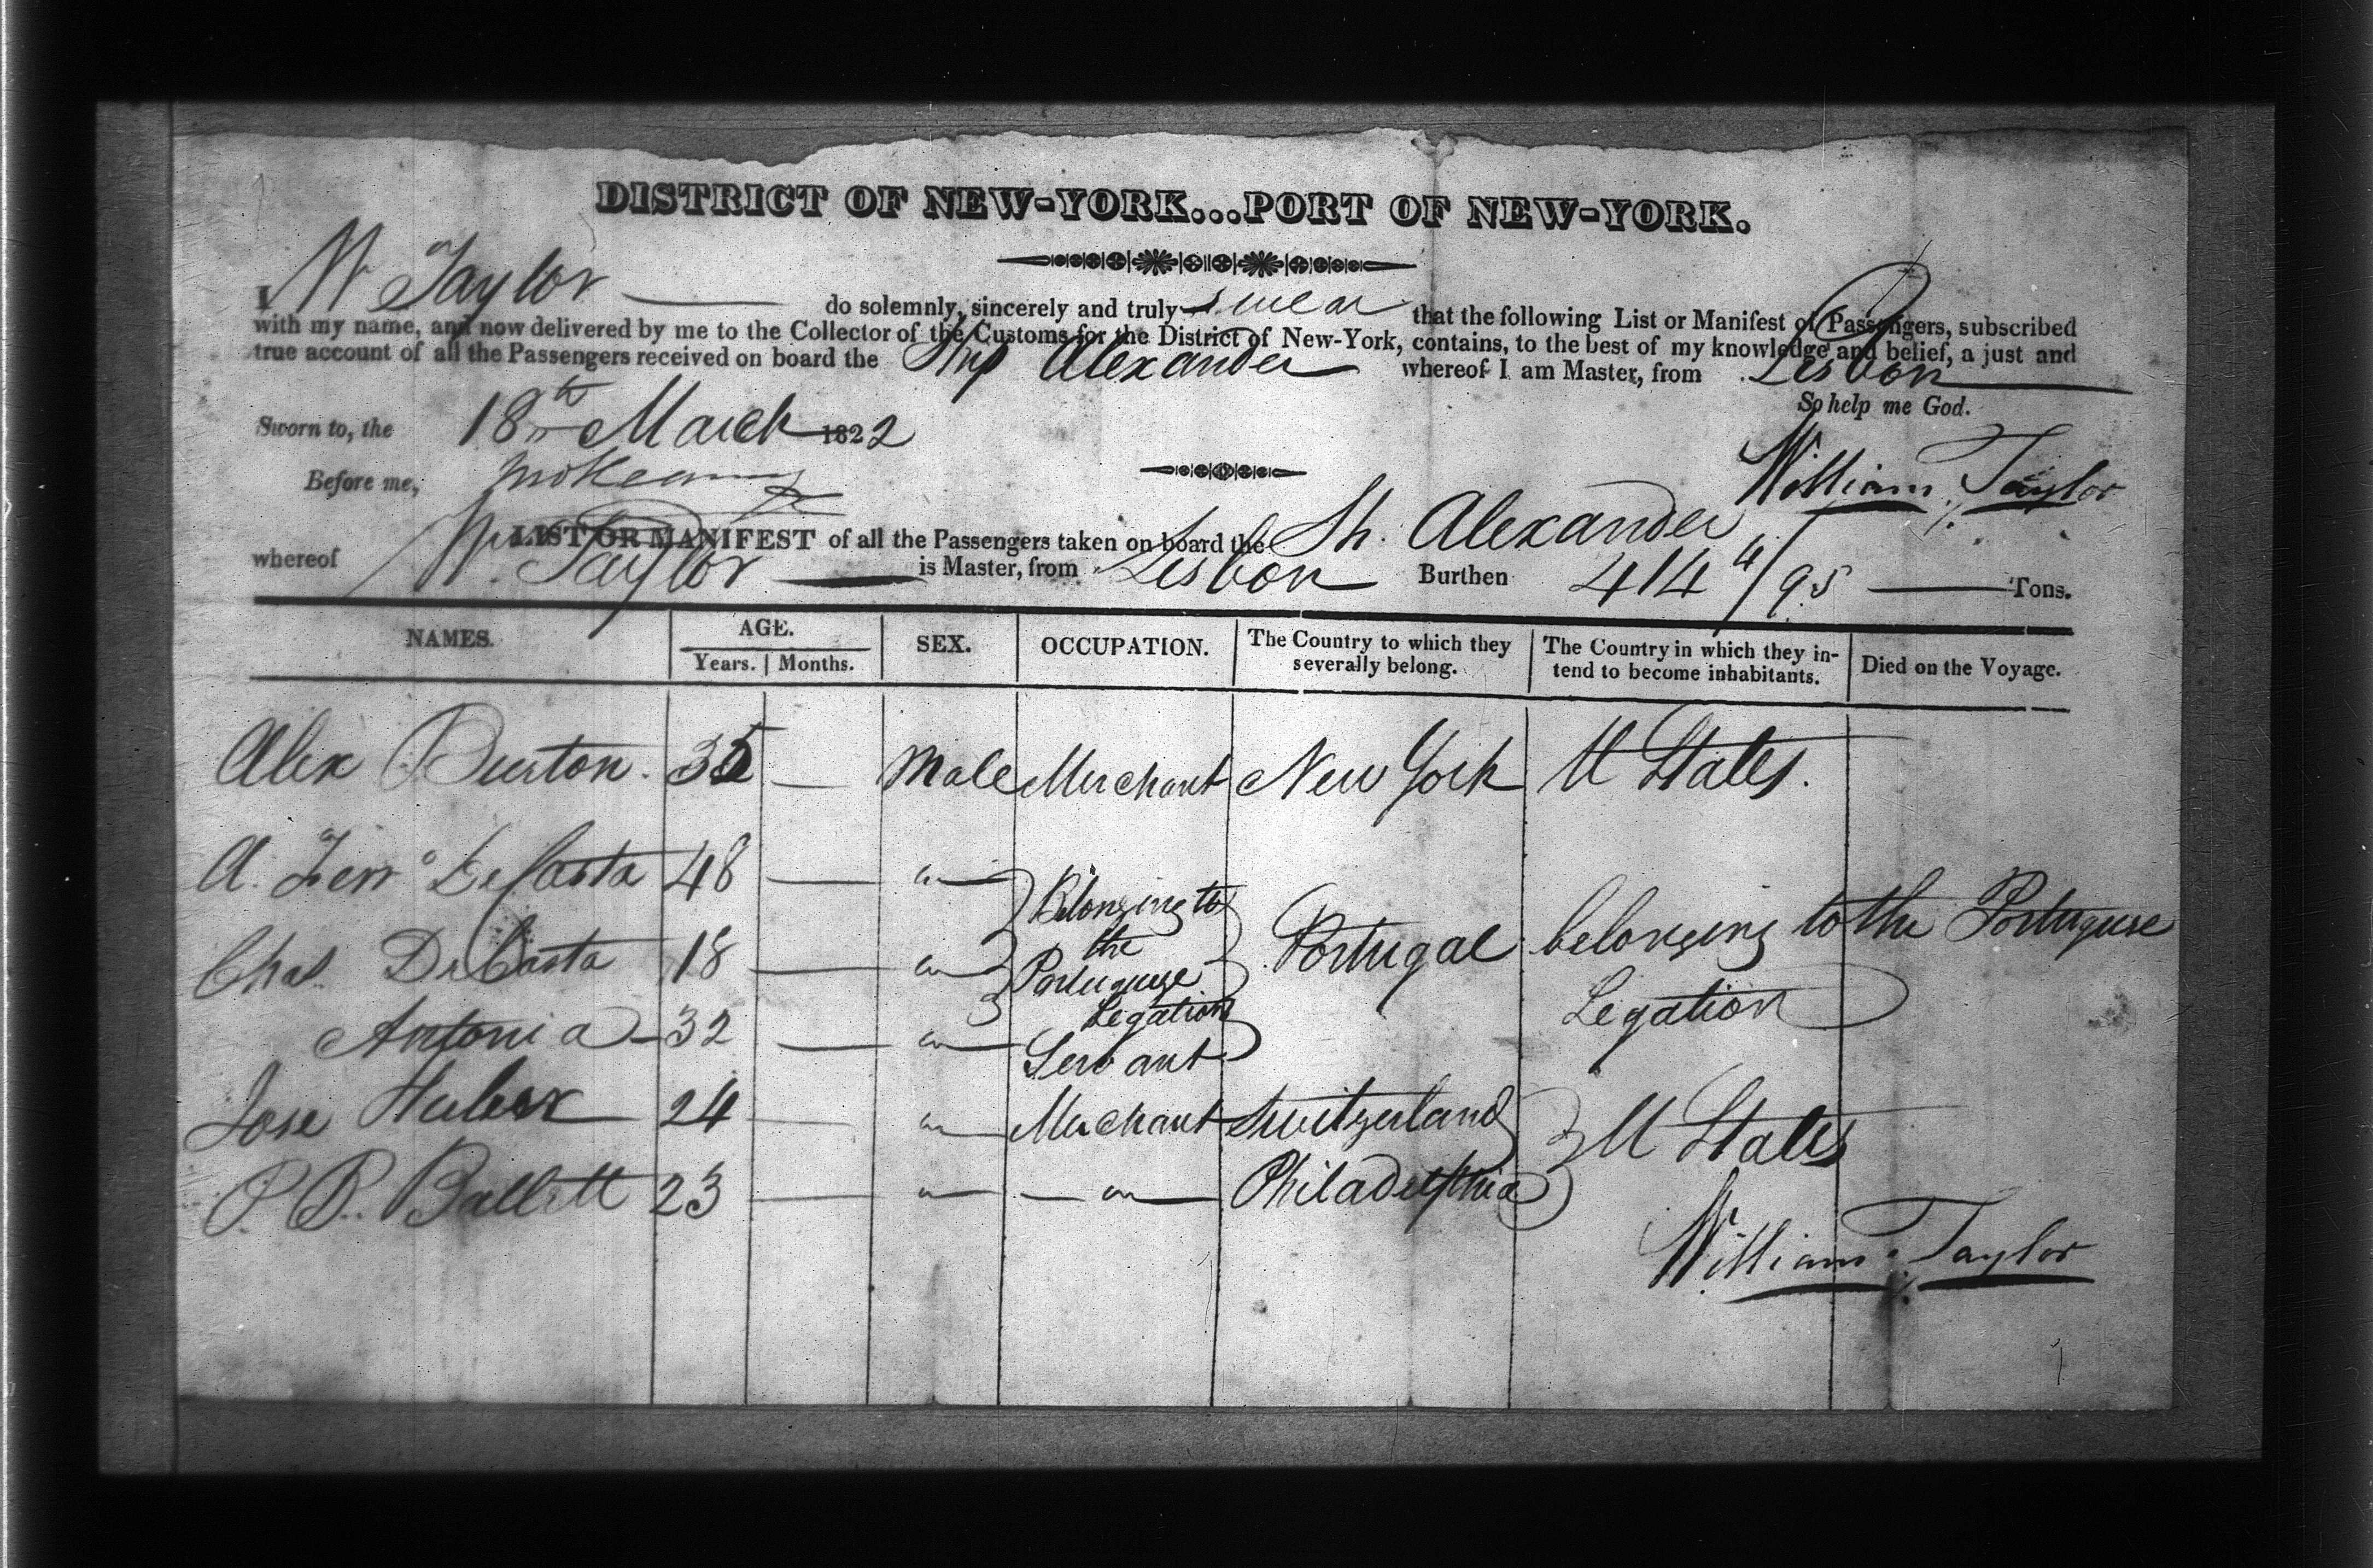 DISTRICT OF NEW-YORK...PORT OF NEW-YORK.
I, Wm Taylor do solemnly, sincerely and truly swear that the following List or Manifest of Passengers, subscribed
with my name, and now delivered by me to the Collector of the Customs for the District of New-York, contains, to the best of my knowledge and belief, a just and
true account of all the Passengers received on board the Ship Alexander whereof I am Master, from Lisbon
So help me God.
Sworn to, the 18th March 1822
William Taylor
Before me,
LIST OR MANIFEST of all the Passengers taken on board the Sh. Alexander
whereof W. Taylor is Master, from Lisbon Burthen 414 4/95 Tons.
NAMES. AGE. SEX. OCCUPATION. The Country to which they severally belong. The Country in which they intend to become inhabitants. Died on the Voyage.
Years. Months.
Alex Burton. 35 — Male Merchant New York U States.
A. Ferro DeCasta 48 — " Belonging to the Portuguese Legation Portugal belonging to the Portuguese Legation
Chas. DeCasta 18 — "
Antonia 32 — " Servant
Jose Huber 24 — " Merchant Switzerland U States
P. B. Ballett 23 — " — " — Philadelphia
William Taylor